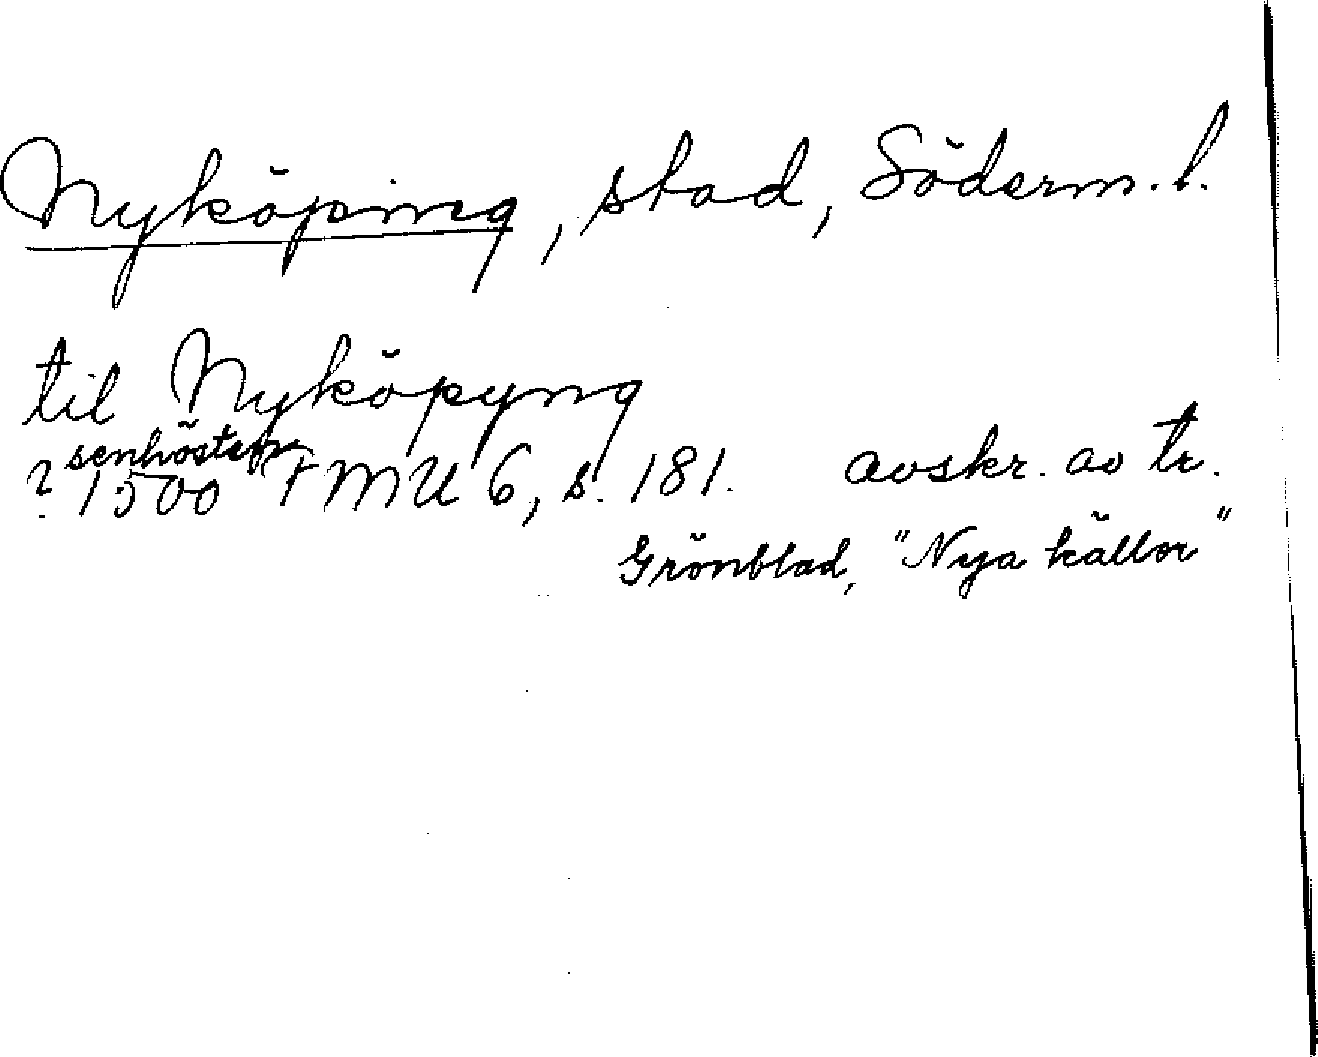 Nyköping, stad, Söderm. l.
til Nyköpyng
senhösten
? 1500 FMU 6, s. 181. avskr. av tr.
Grönblad, "Nya källor"